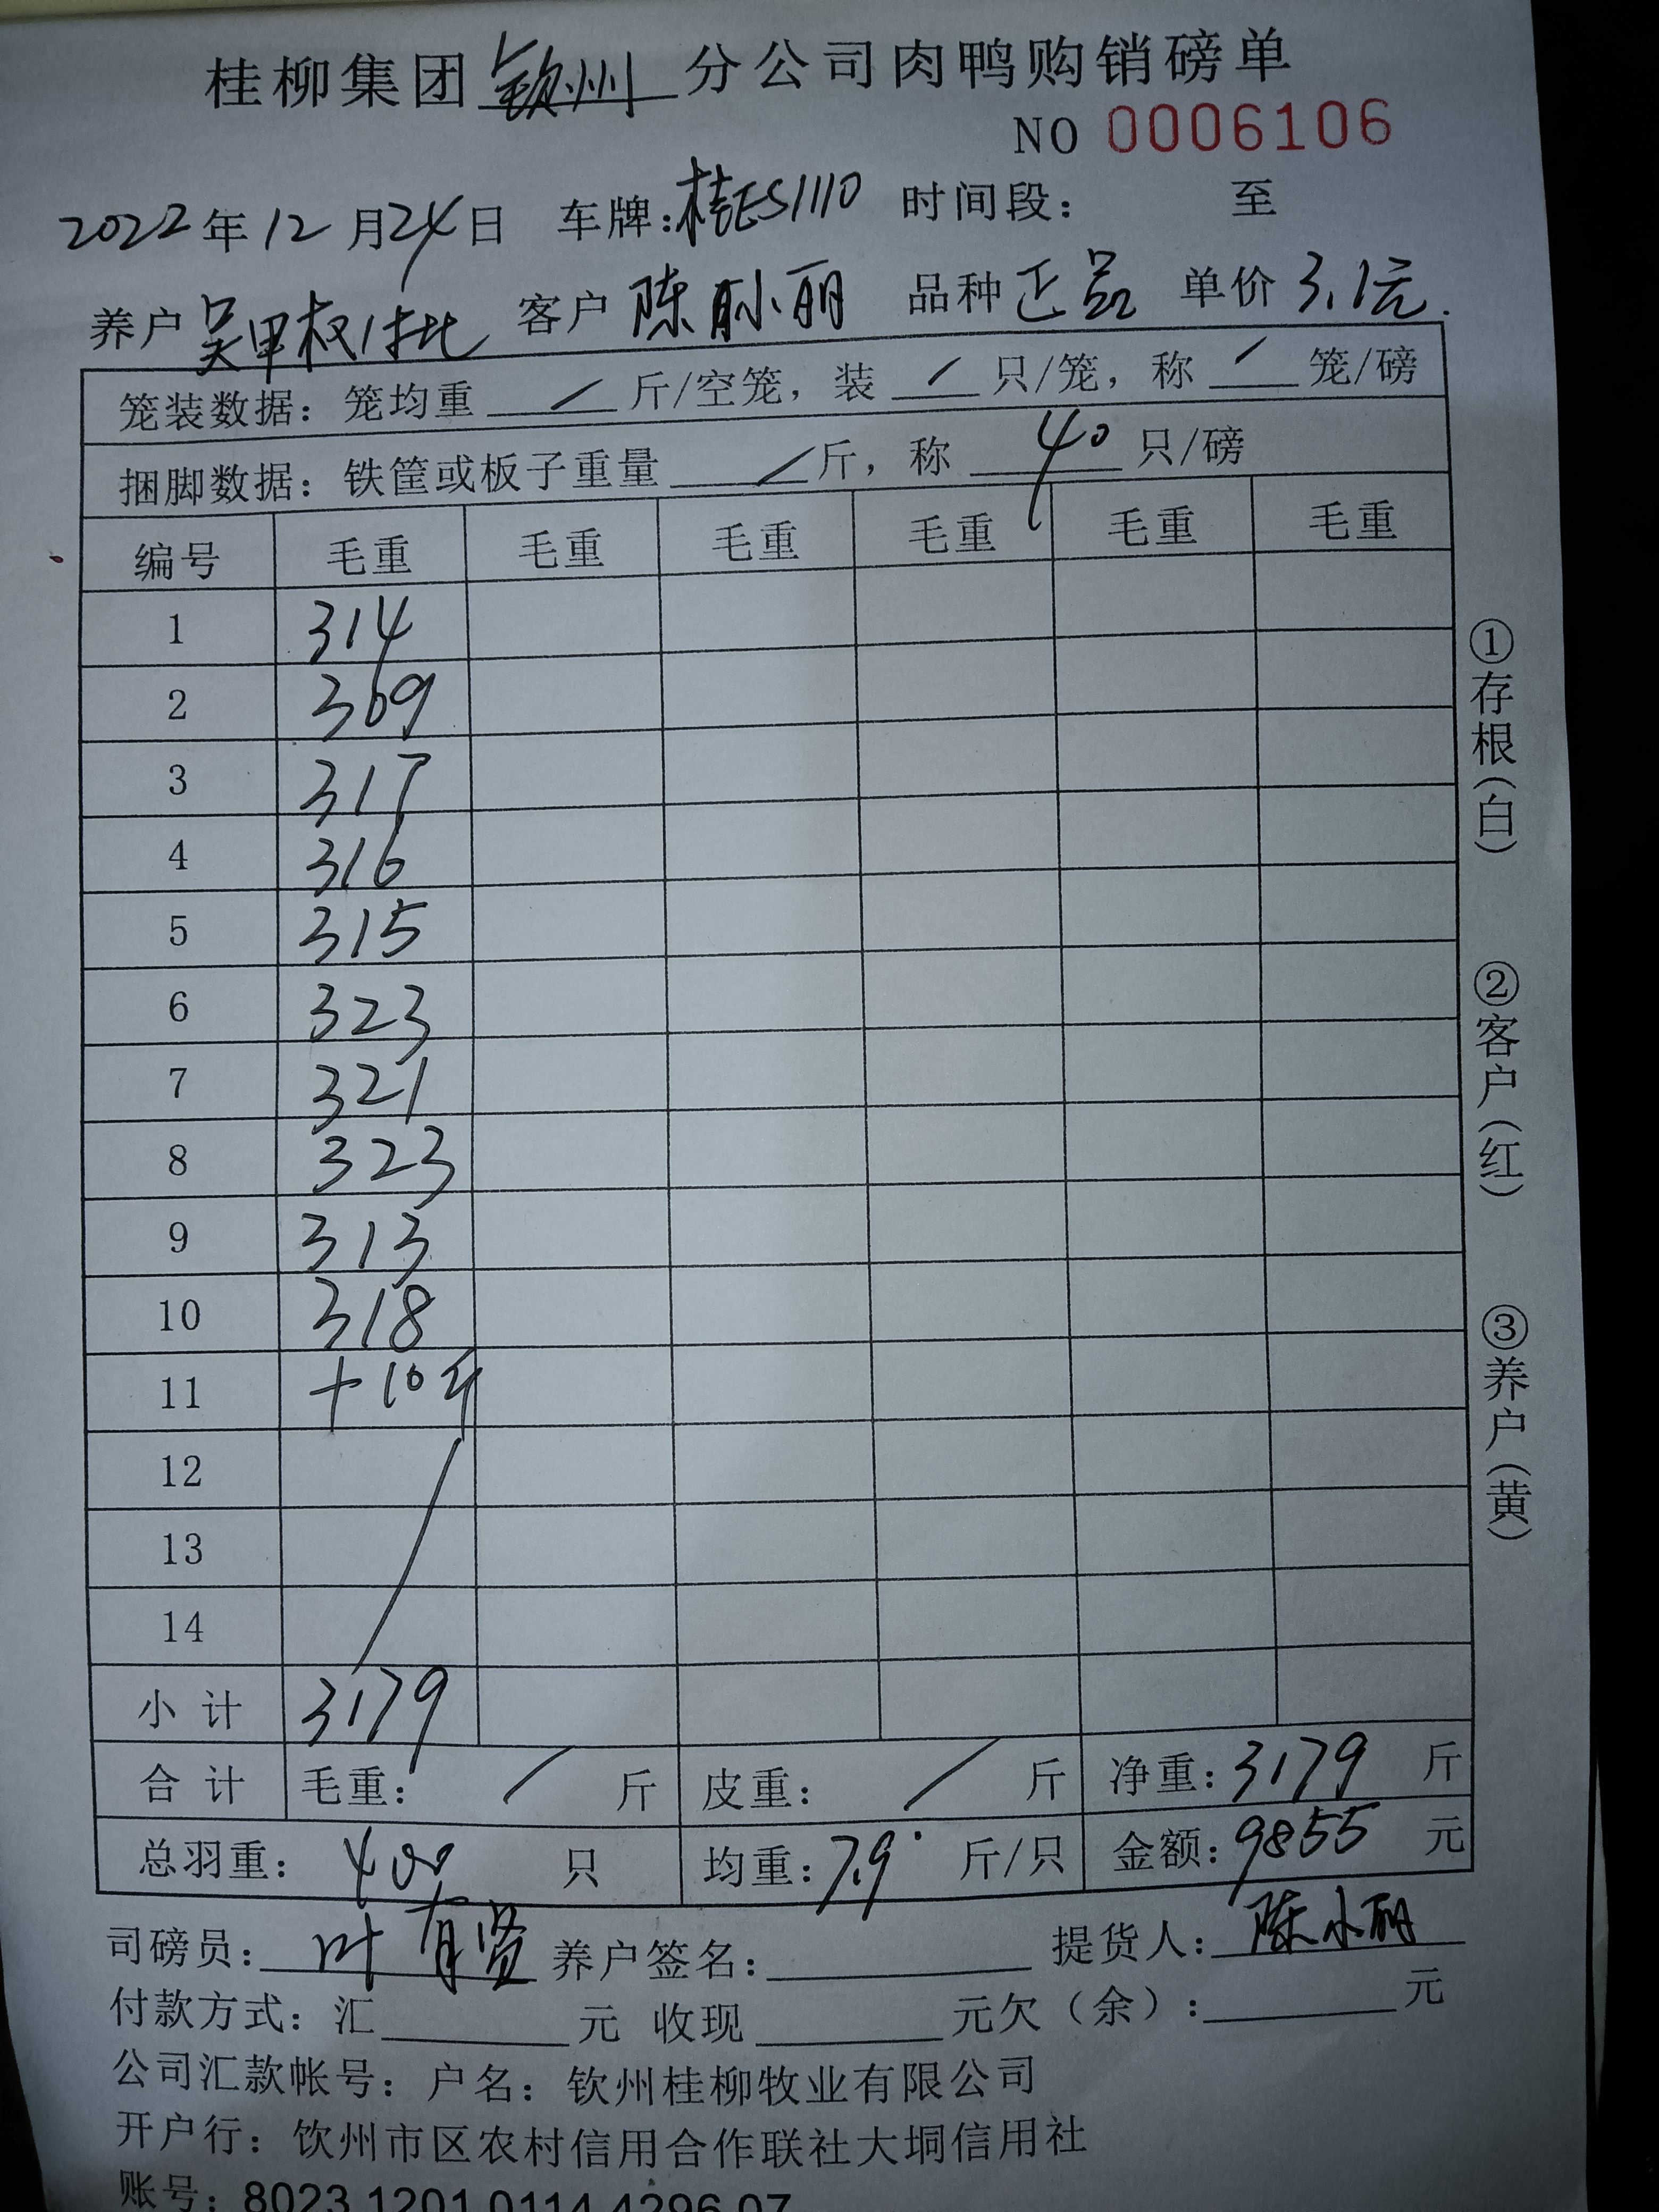 桂柳集团钦州分公司肉鸭购销磅单
NO 0006106
2022年12月24日 车牌:桂ES1110 时间段: 至
养户 吴甲权1批 客户 陈小丽 品种 正品 单价 3.1元.
笼装数据: 笼均重 / 斤/空笼, 装 / 只/笼, 称 / 笼/磅
捆脚数据: 铁筐或板子重量 / 斤, 称 40 只/磅
编号 毛重 毛重 毛重 毛重 毛重 毛重
1 314
2 309
3 317
4 316
5 315
6 323
7 321
8 323
9 313
10 318
11 +10斤
12
13
14
小计 3179
合计 毛重: / 斤 皮重: / 斤 净重: 3179 斤
总羽重: 400 只 均重: 7.9 斤/只 金额: 9855 元
司磅员: 叶有贤 养户签名: 提货人: 陈小丽
付款方式: 汇 元 收现 元欠(余): 元
公司汇款帐号: 户名: 钦州桂柳牧业有限公司
开户行: 钦州市区农村信用合作联社大垌信用社
账号: 8023 1201 0114 4296 07
①存根(白)
②客户(红)
③养户(黄)